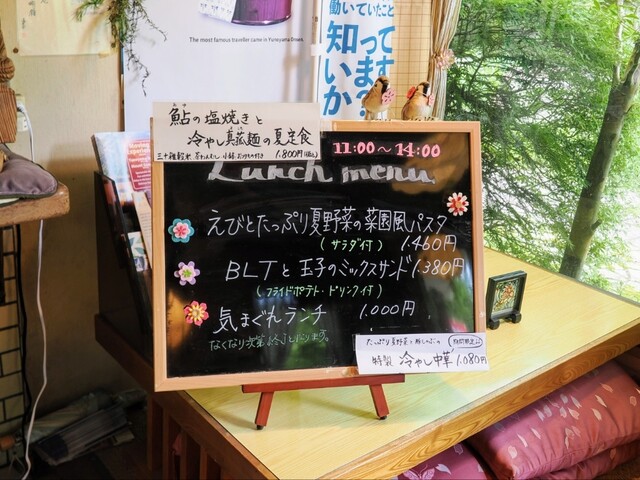 The most famous traveller came from Yunoyama Onsen.
働いていたこと
知って
います
か?
鮎の塩焼きと
冷やし真菰麺の夏定食
三十雑穀米、茶わんむし、小鉢、お漬物付き 1.800円(税込)
11:00～14:00
Lunch menu
えびとたっぷり夏野菜の菜園風パスタ
(サラダ付) 1.460円
BLTと玉子のミックスサンド 1.380円
(フライドポテト・ドリンク付)
気まぐれランチ 1.000円
なくなり次第〆切となります。
たっぷり夏野菜と豚しゃぶの
期間限定
特製 冷やし中華 1.080円